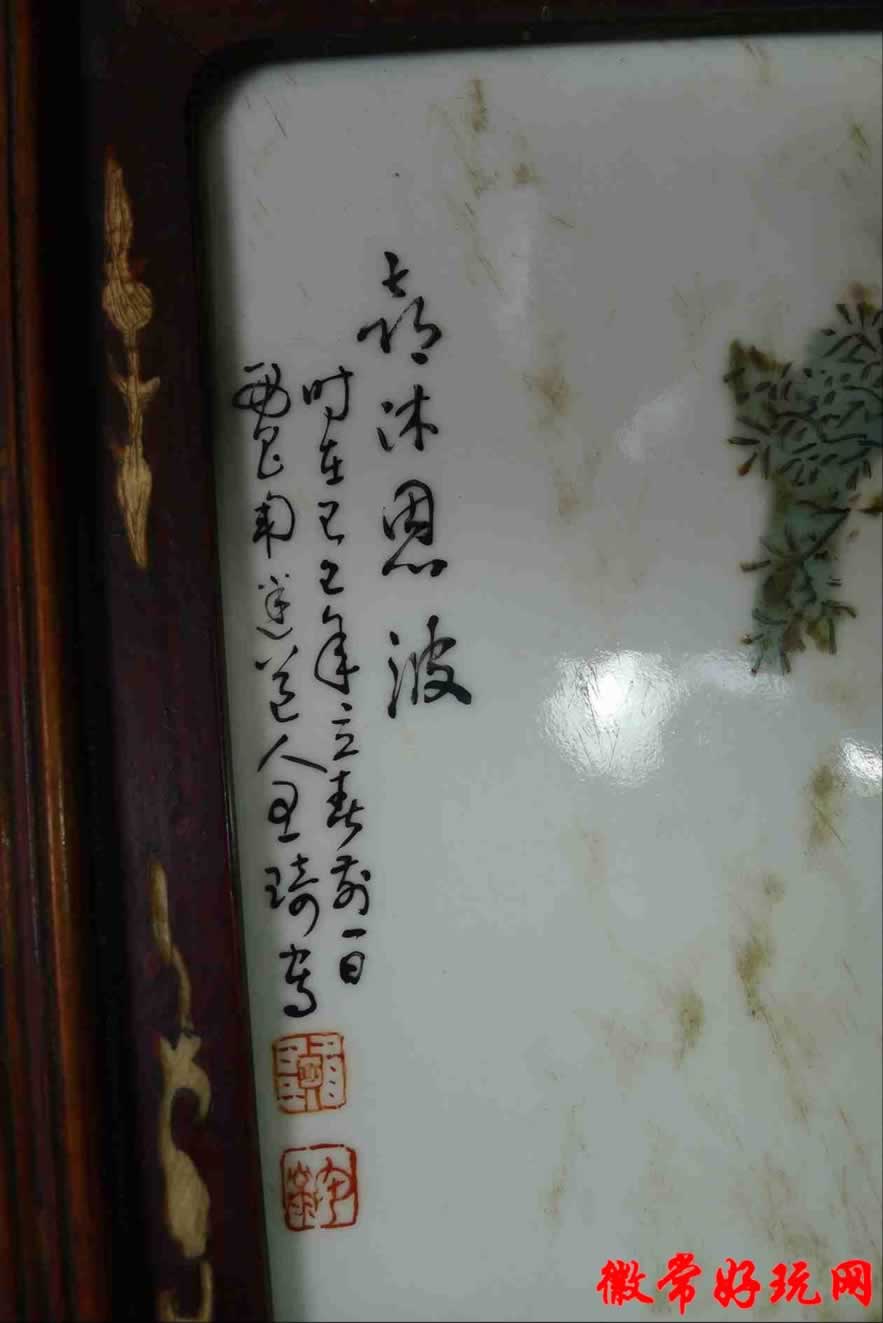 沐恩波
时在己年立春前一日
西昌匋迷道人王琦写
徽常好玩网